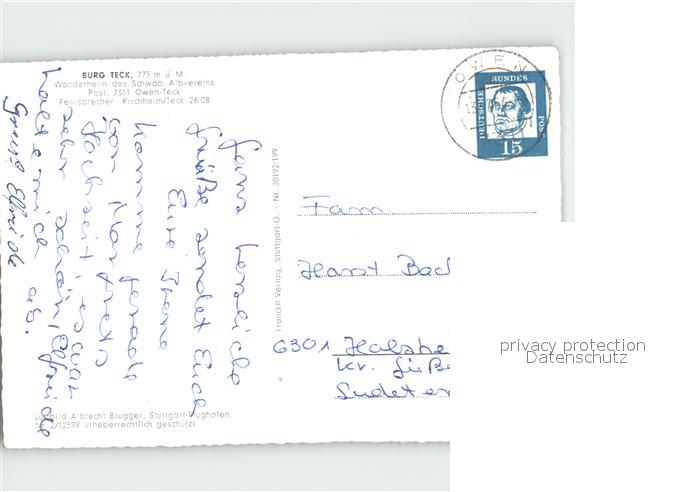 BURG TECK, 775 m ü. M.
Wanderheim des Schwäb. Albvereins
Post: 7311 Owen-Teck
Fernsprecher: Kirchheim/Teck 26 08
Ganz herzliche
Grüße sendet Euch
Eure
komme gerade
von
Hochzeit, es war
sehr schön, Elfriede
holte mich ab.
Gruß Elfriede
Luftbild Albrecht Brugger, Stuttgart-Flughafen
Nr. 2/12599 urheberrechtlich geschützt
Franckh-Verlag, Stuttgart-O. · Nr. 30192-199
OWEN
DEUTSCHE BUNDESPOST
15
Fam.
Horst Bac
6301
Kr.
Sudeten
privacy protection
Datenschutz